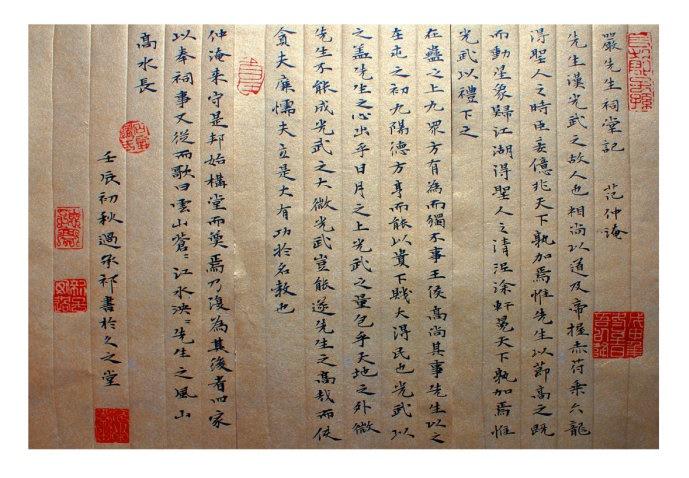 嚴先生祠堂記 范仲淹
先生漢光武之故人也相尚以道及帝握赤符乘六龍
得聖人之時臣妾億兆天下孰加焉惟先生以節高之既
而動星象歸江湖得聖人之清泥涂軒冕天下孰加焉惟
光武以禮下之
在蠱之上九眾方有為而獨不事王侯高尚其事先生以之
在屯之初九陽德方亨而能以貴下賤大得民也光武以
之蓋先生之心出乎日月之上光武之量包乎天地之外微
先生不能成光武之大微光武豈能遂先生之高哉而使
貪夫廉懦夫立是大有功於名教也
仲淹來守是邦始構堂而奠焉乃復為其後者四家
以奉祠事又從而歌曰雲山蒼〻江水泱〻先生之風山
高水長
壬辰初秋過承祁書於久之堂